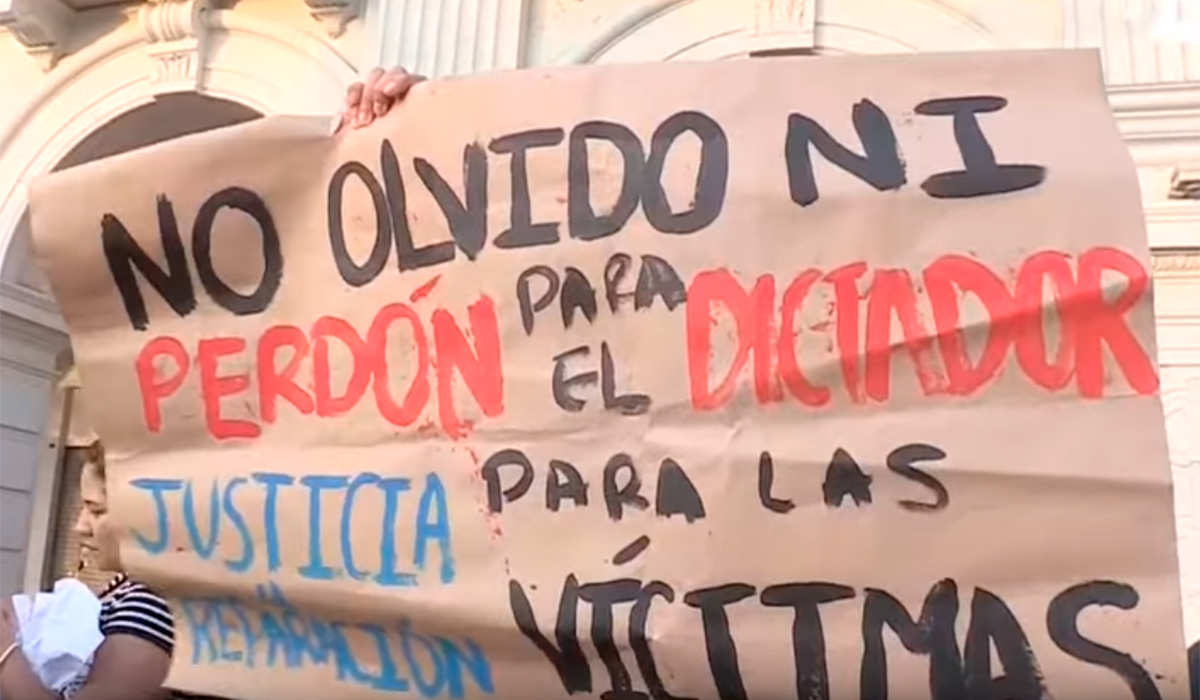 NO OLVIDO NI
PERDÓN PARA EL DICTADOR
JUSTICIA
Y LA
REPARACIÓN
PARA LAS
VÍCTIMAS